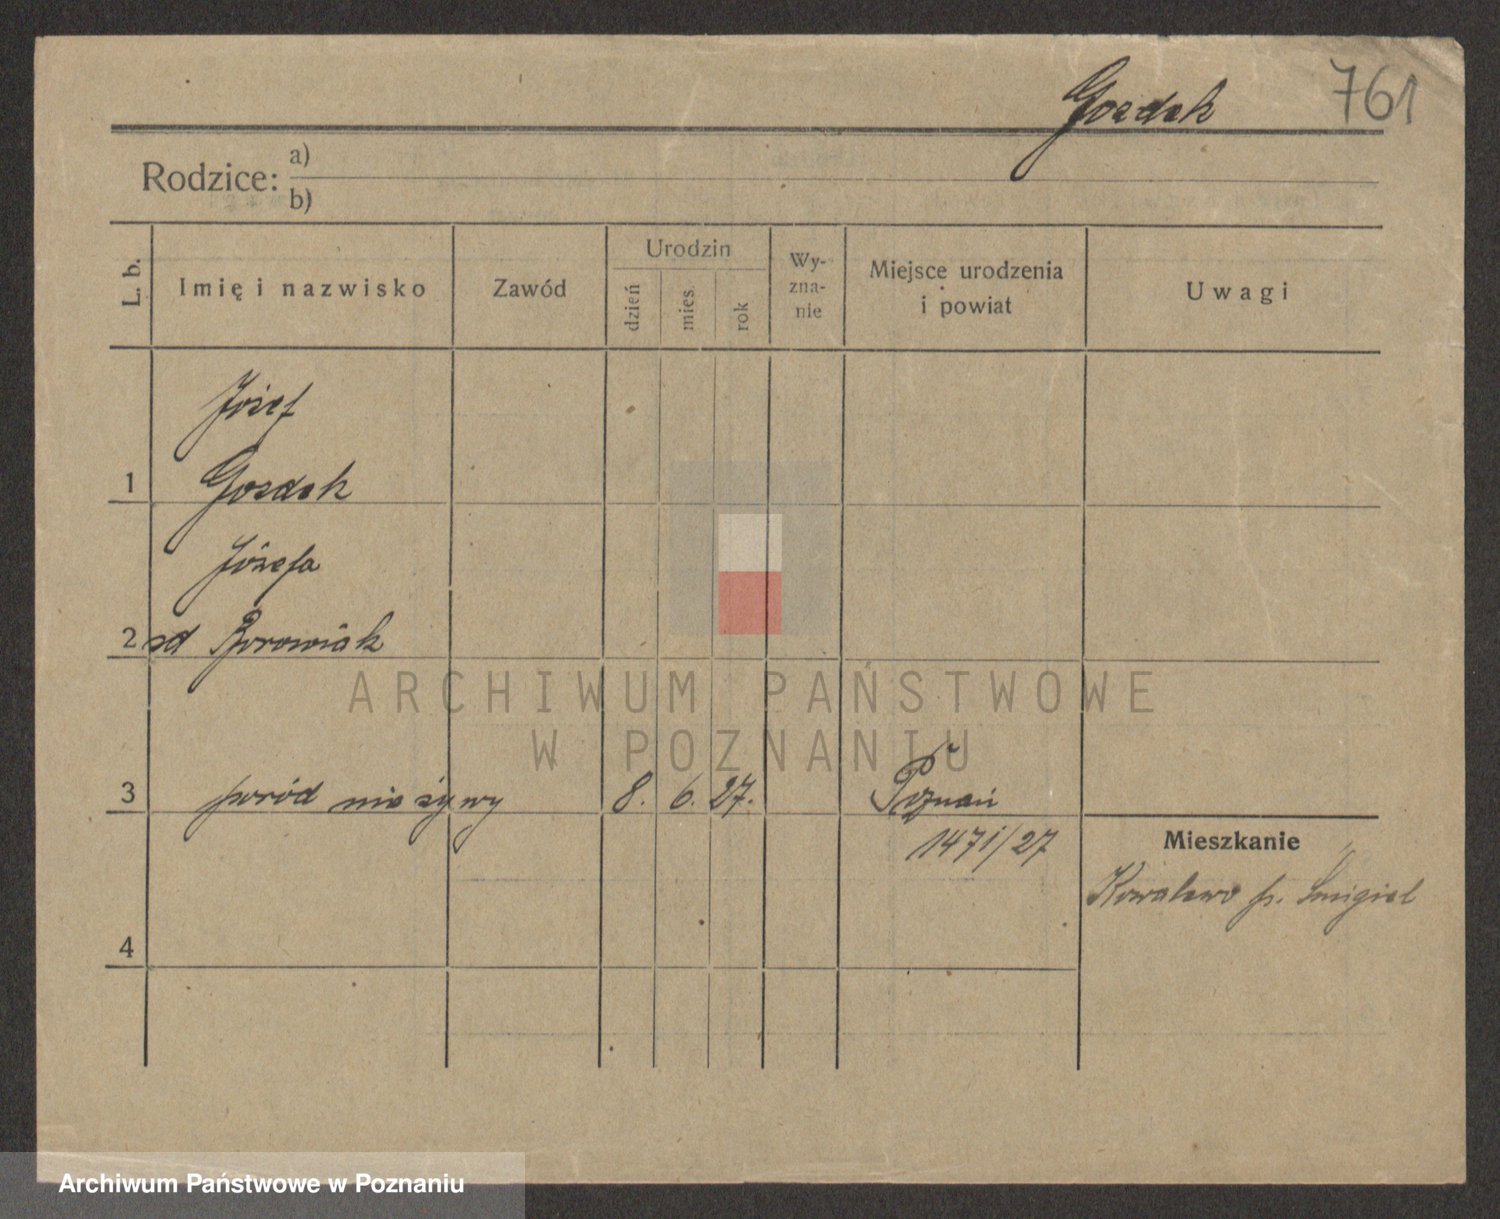 Gozdek 761
Rodzice: a)
b)
L. b. Imię i nazwisko Zawód Urodzin dzień mies. rok Wy-zna-nie Miejsce urodzenia i powiat Uwagi
Józef
1 Gozdek
Józefa
2 zd Borowiak
3 poród nie żywy 8. 6. 27. Poznań
1471/27
Mieszkanie
Kowalewo p. Śmigiel
4
ARCHIWUM PAŃSTWOWE
W POZNANIU
Archiwum Państwowe w Poznaniu